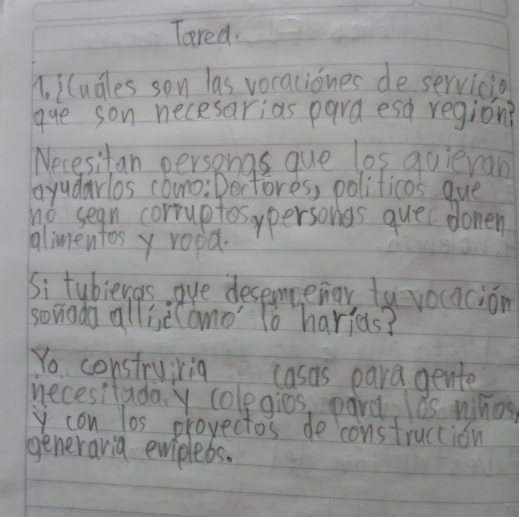 Tarea.
1. ¿Cuáles son las vocaciónes de servicio
que son necesarias para esa región?
Necesitan personas que los quieran
ayudarlos como: Doctores, politicos que
no sean corruptos, y personas que donen
alimentos y ropa.
Si tubieras que desempeñar tu vocación
soñada allí, ¿Como lo harías?
Yo construiria casas para gente
necesitada, y colegios para los niños,
y con los proyectos de construcción
generaria empleos.